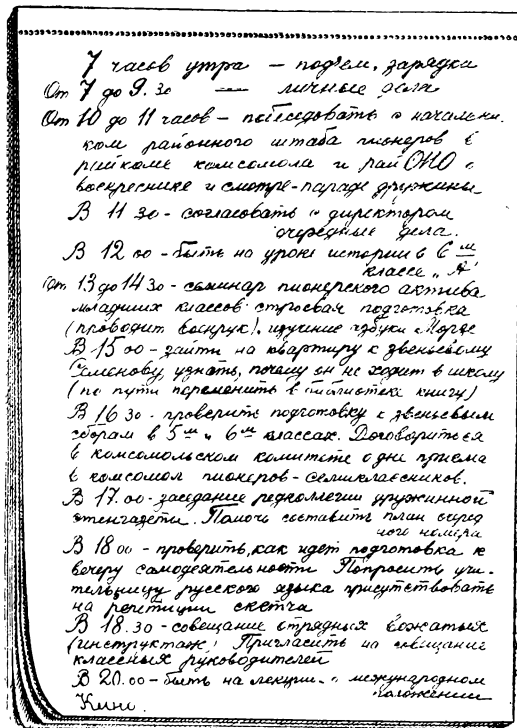 7 часов утра — подъем, зарядка
От 7 до 9.30 — личные дела
От 10 до 11 часов — побеседовать с начальни-
ком районного штаба пионеров в
райкоме комсомола и рай ОНО о
воскреснике и смотре-параде дружины
В 11 30 - согласовать с директором
очередные дела.
В 12 00 - быть на уроке истории в 6 м
классе „А"
От 13 до 14 30 - семинар пионерского актива
младших классов: строевая подготовка
(проводит военрук), изучение азбуки Морзе
В 15 00 - зайти на квартиру к звеньевому
Семенову, узнать, почему он не ходит в школу
(по пути переменить в библиотеке книгу)
В 16 30 - проверить подготовку к звеньевым
сборам в 5 м и 6 м классах. Договориться
в комсомольском комитете о дне приема
в комсомол пионеров - семиклассников.
В 17.00 - заседание редколлегии дружинной
стенгазеты. Помочь составить план очеред
ного номера
В 18 00 - проверить, как идет подготовка к
вечеру самодеятельности Попросить учи-
тельницу русского языка присутствовать
на репетиции скетча
В 18.30 - совещание отрядных вожатых
(инструктаж) Пригласить на совещание
классных руководителей
В 20.00 - быть на лекции о международном
положении
Кино.